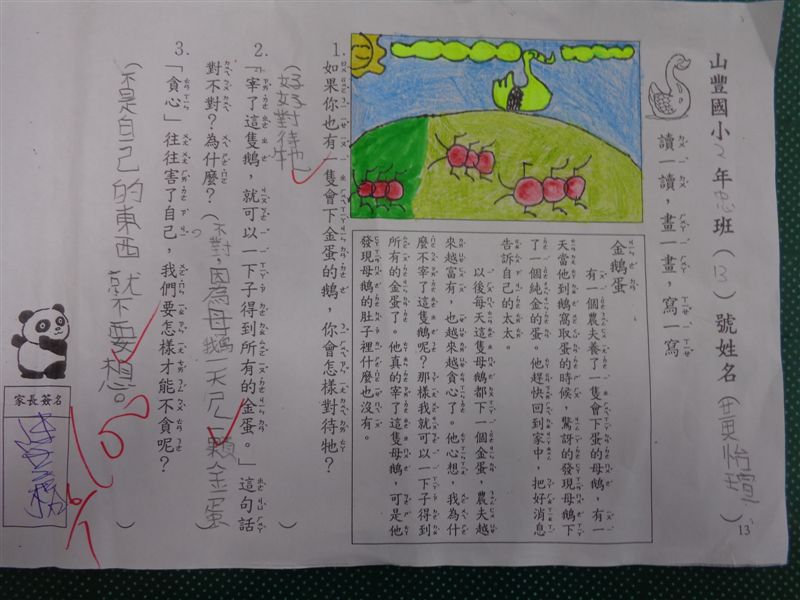 山豐國小2年忠班（13）號姓名（黃怡瑄）
讀一讀，畫一畫，寫一寫
金鵝蛋
有一個農夫養了一隻會下蛋的母鵝，有一
天當他到鵝窩取蛋的時候，驚訝的發現母鵝下
了一個純金的蛋。他趕快回到家中，把好消息
告訴自己的太太。
以後每天這隻母鵝都下一個金蛋，農夫越
來越富有，也越來越貪心了。他心想，我為什
麼不宰了這隻鵝呢？那樣我就可以一下子得到
所有的金蛋了。他真的宰了這隻母鵝，可是他
發現母鵝的肚子裡什麼也沒有。
1.如果你也有一隻會下金蛋的鵝，你會怎樣對待牠？
（好好對待牠）
2.「宰了這隻鵝，就可以一下子得到所有的金蛋。」這句話
對不對？為什麼？（不對，因為母鵝一天只一顆金蛋）
3.「貪心」往往害了自己，我們要怎樣才能不貪呢？
（不是自己的東西就不要想。）
家長簽名
100
6/7
13